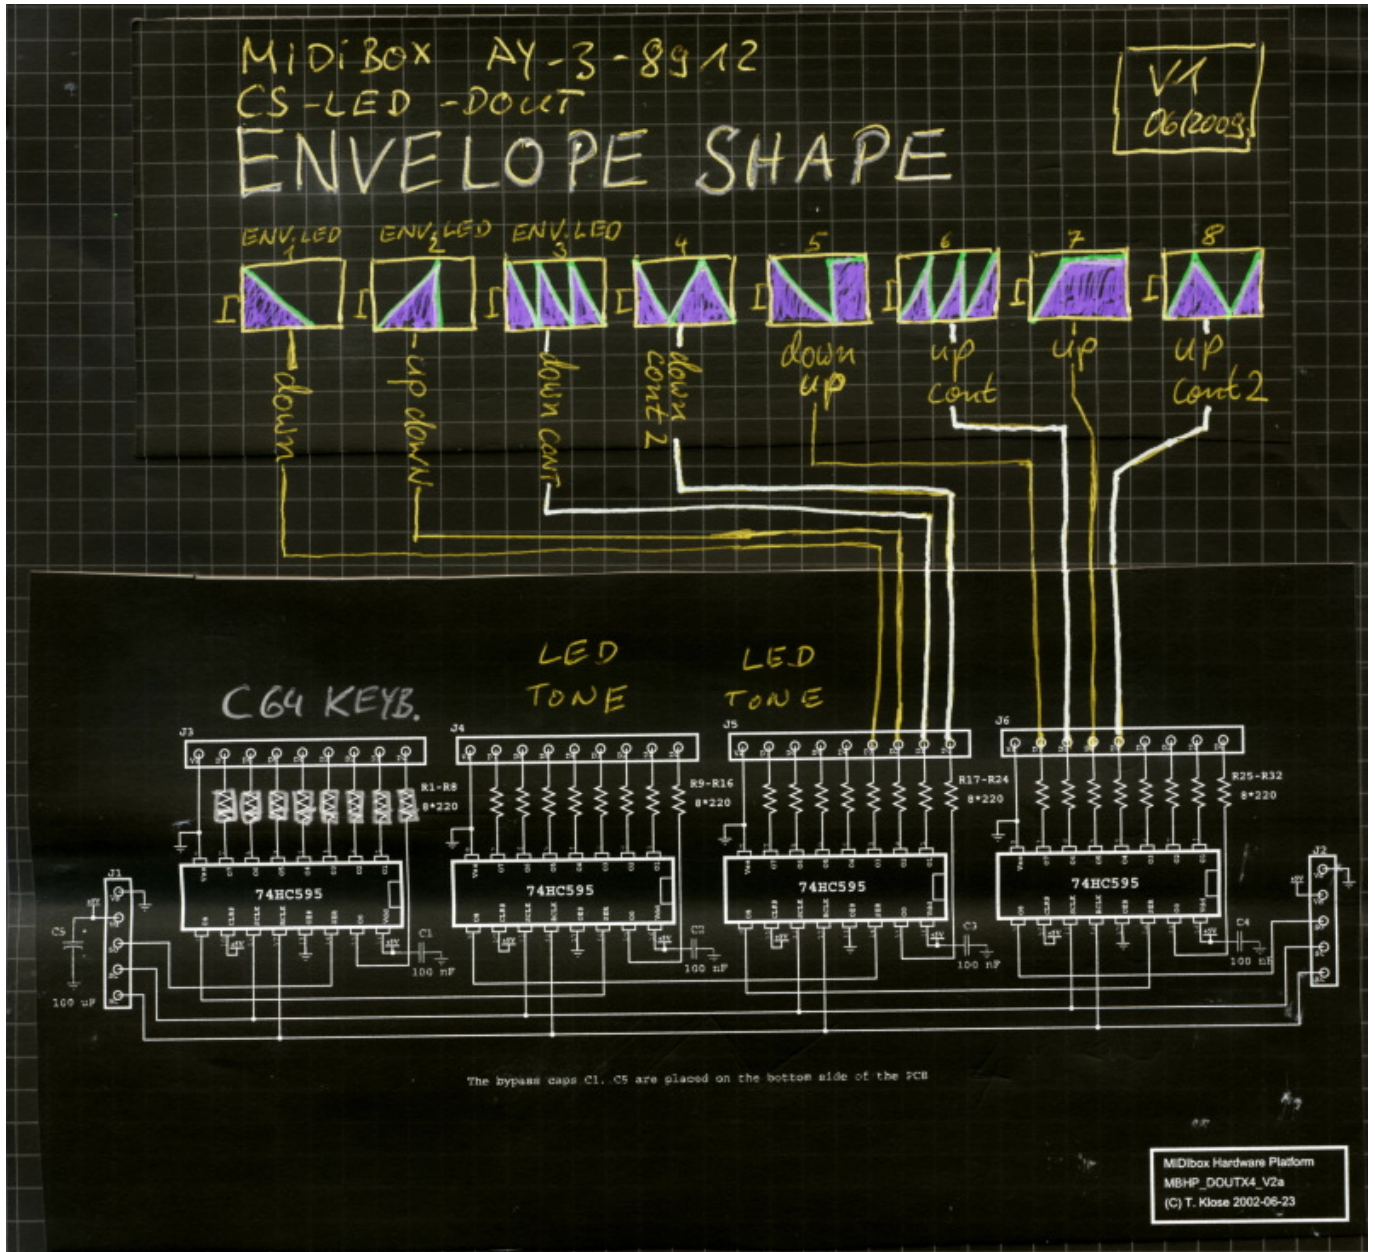 MIDIBOX AY-3-8912
CS-LED -DOUT
ENVELOPE SHAPE
V1
06/2009
ENV.LED
1
ENV.LED
2
ENV.LED
3
4
5
6
7
8
down
up down
down cont
down
cont 2
down
up
up
cont
up
up
cont 2
C64 KEYB.
LED
TONE
LED
TONE
J3
J4
J5
J6
R1-R8
8*220
R9-R16
8*220
R17-R24
8*220
R25-R32
8*220
74HC595
74HC595
74HC595
74HC595
J1
J2
C5
100 uF
C1
100 nF
100 nF
C3
100 nF
C4
100 nF
The bypass caps C1..C5 are placed on the bottom side of the PCB
MIDIbox Hardware Platform
MBHP_DOUTX4_V2a
(C) T. Klose 2002-06-23